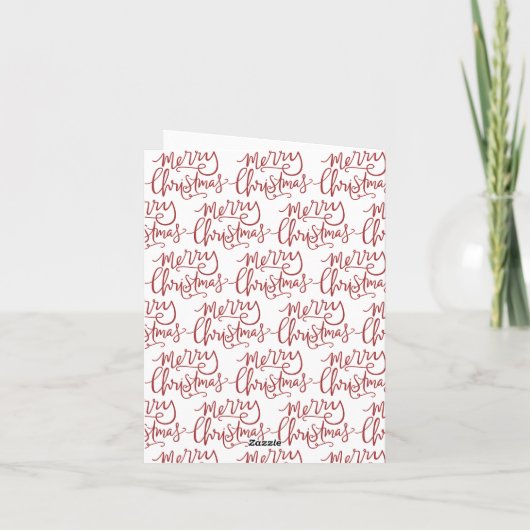 merry merry merry
Christmas Christmas Christmas
merry merry
Christmas Christmas
merry merry merry
Christmas Christmas Christmas
merry merry
Christmas Christmas
merry merry merry
Christmas Christmas Christmas
merry merry
Christmas Christmas
Zazzle
merry merry merry